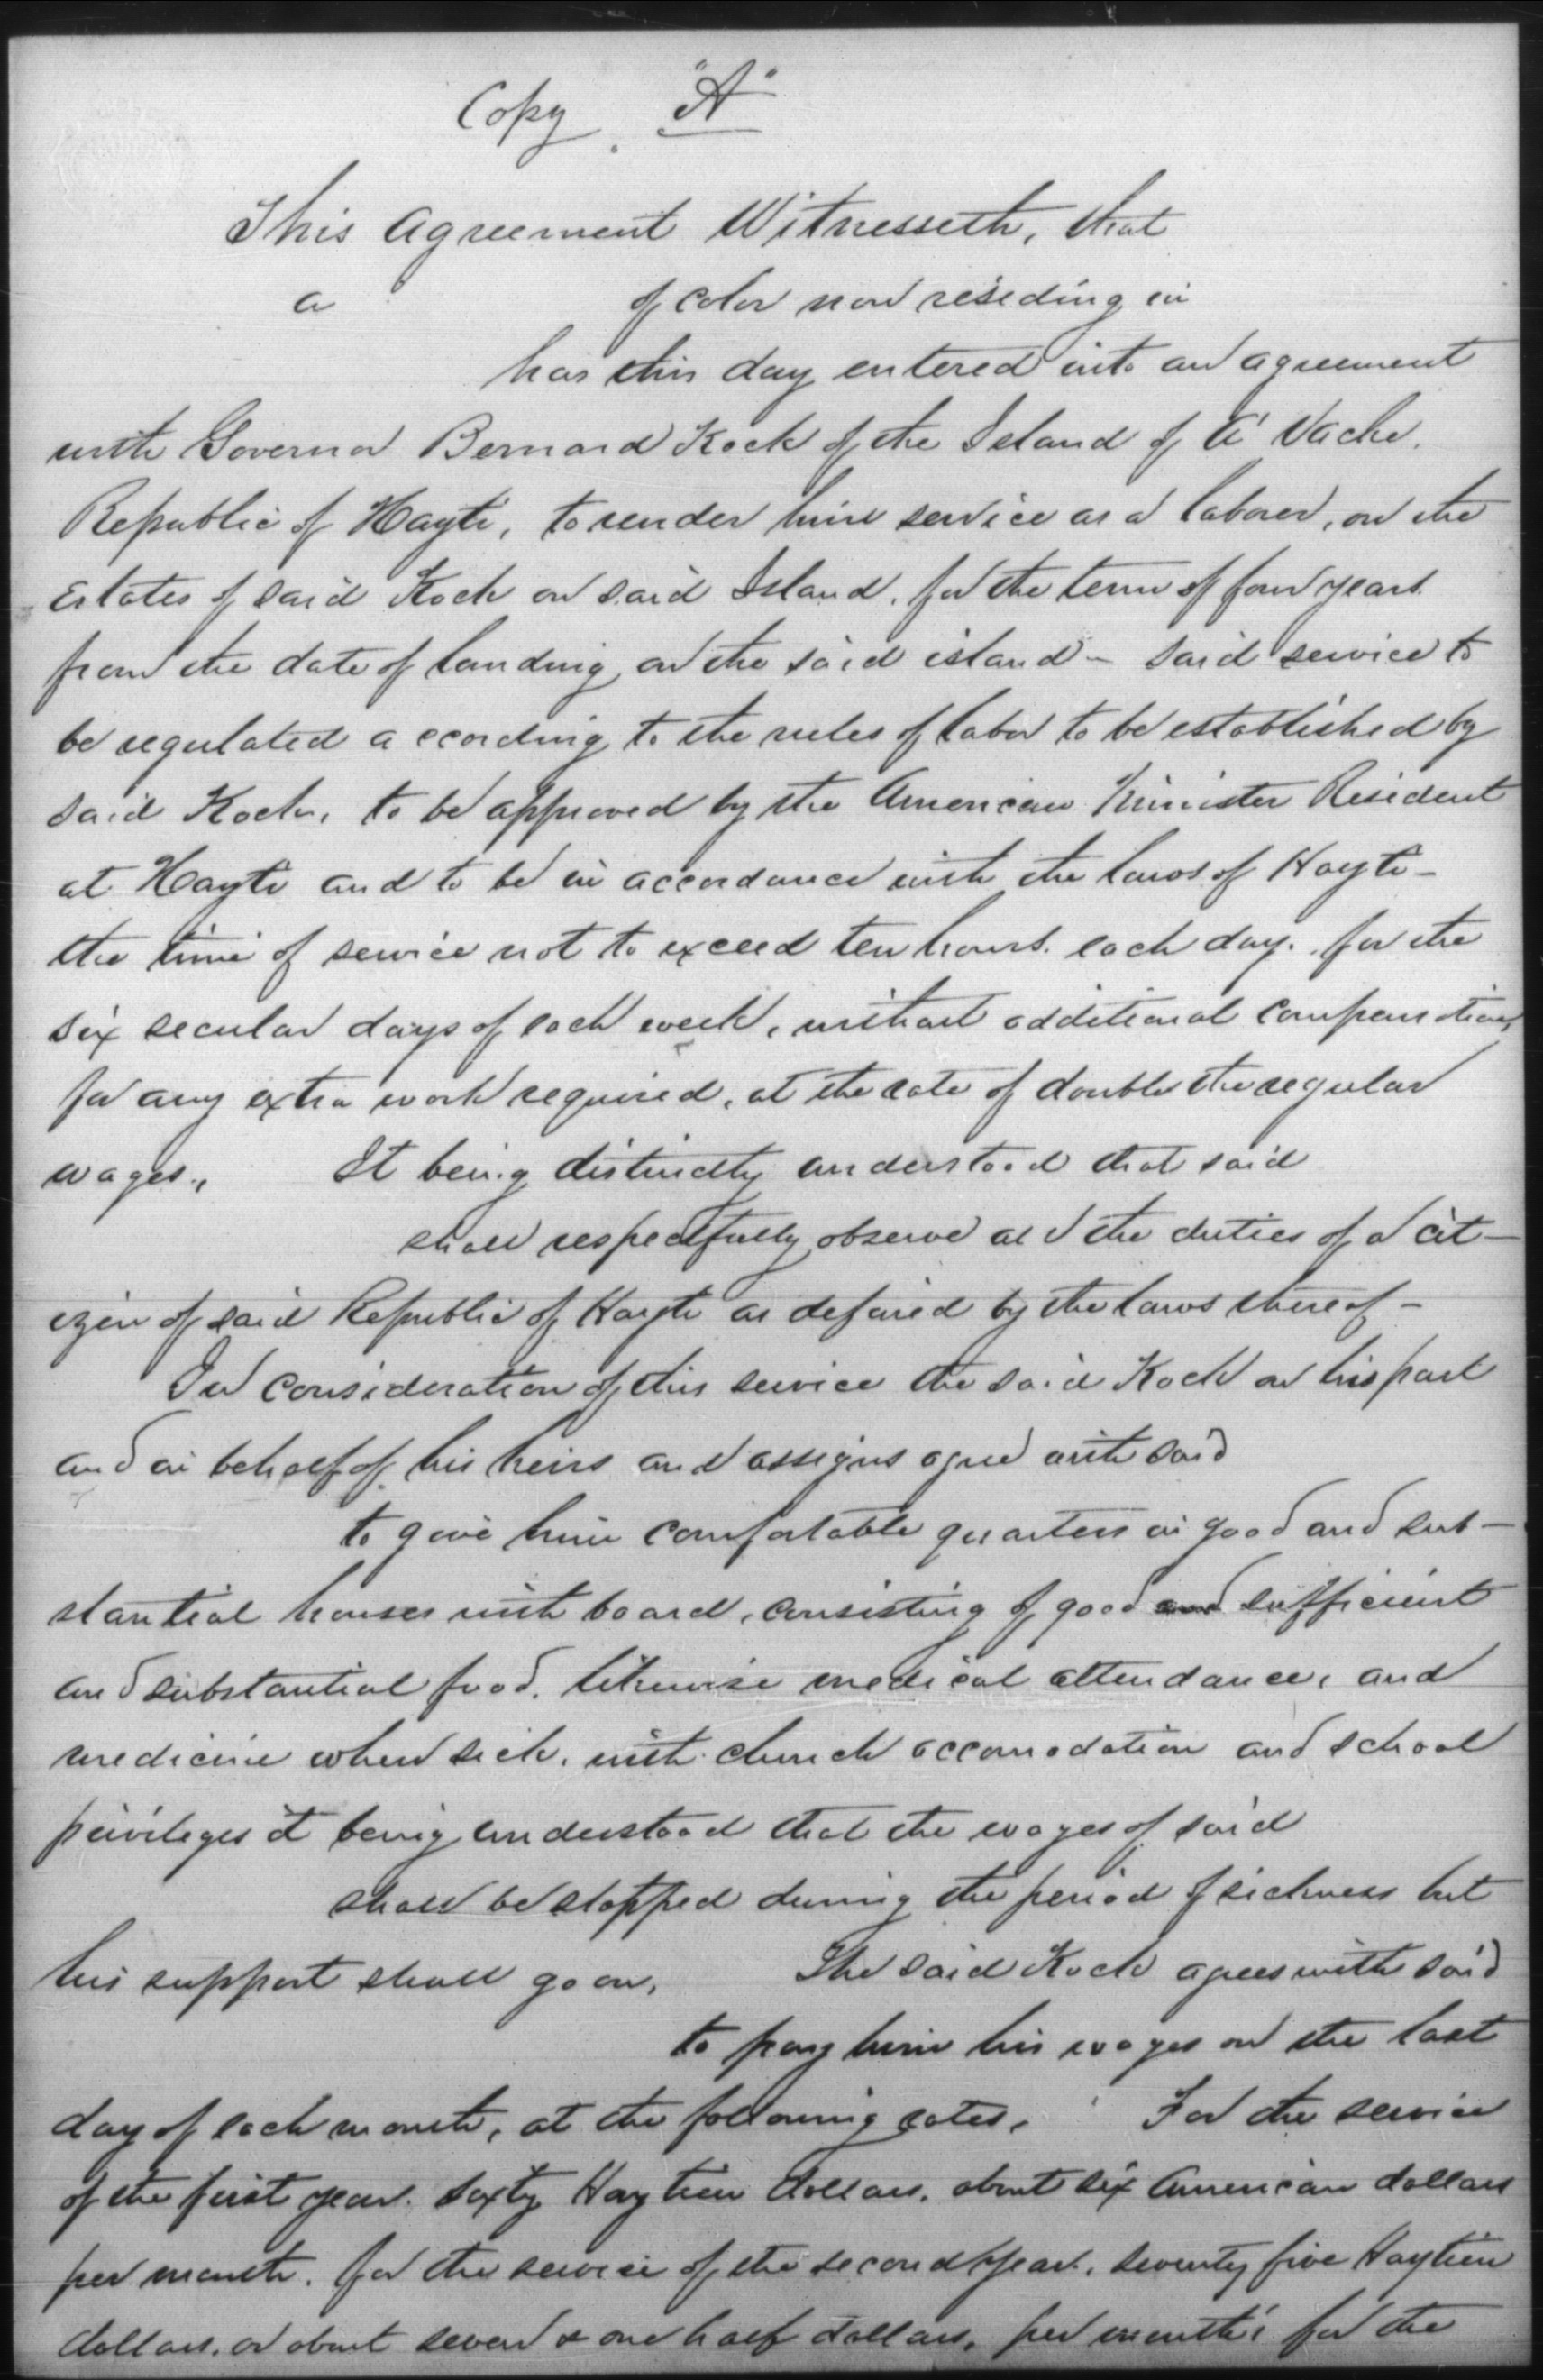 Copy "A"
This Agreement Witnesseth, that
a of color now residing in
has this day entered into an agreement
with Governor Bernard Kock of the Island of A' Vache.
Republic of Hayti, to render him service as a laborer, on the
estates of said Kock on said Island, for the term of four years
from the date of landing on the said island - said service to
be regulated according to the rules of labor to be established by
said Kock, to be approved by the American Minister Resident
at Hayti and to be in accordance with the laws of Hayti -
the time of service not to exceed ten hours each day. for the
six secular days of each week, without additional compensation,
for any extra work required, at the rate of double the regular
wages., It being distinctly understood that said
shall respectfully observe all the duties of a cit-
izen of said Republic of Hayti as defined by the laws thereof -
In consideration of this service the said Kock on his part
and on behalf of his heirs and assigns agree with said
to give him comfortable quarters in good and sub-
stantial houses with board, consisting of good and sufficient
and substantial food. likewise medical attendance, and
medicine when sick. with church accomodation and school
privileges it being understood that the wages of said
shall be stopped during the period of sickness but
his support shall go on, The said Kock agrees with said
to pay him his wages on the last
day of each month, at the following rates. For the service
of the first year. sixty Haytien dollars. about six American dollars
per month. for the service of the second year. seventy five Haytien
dollars. or about seven & one half dollars. per month; for the